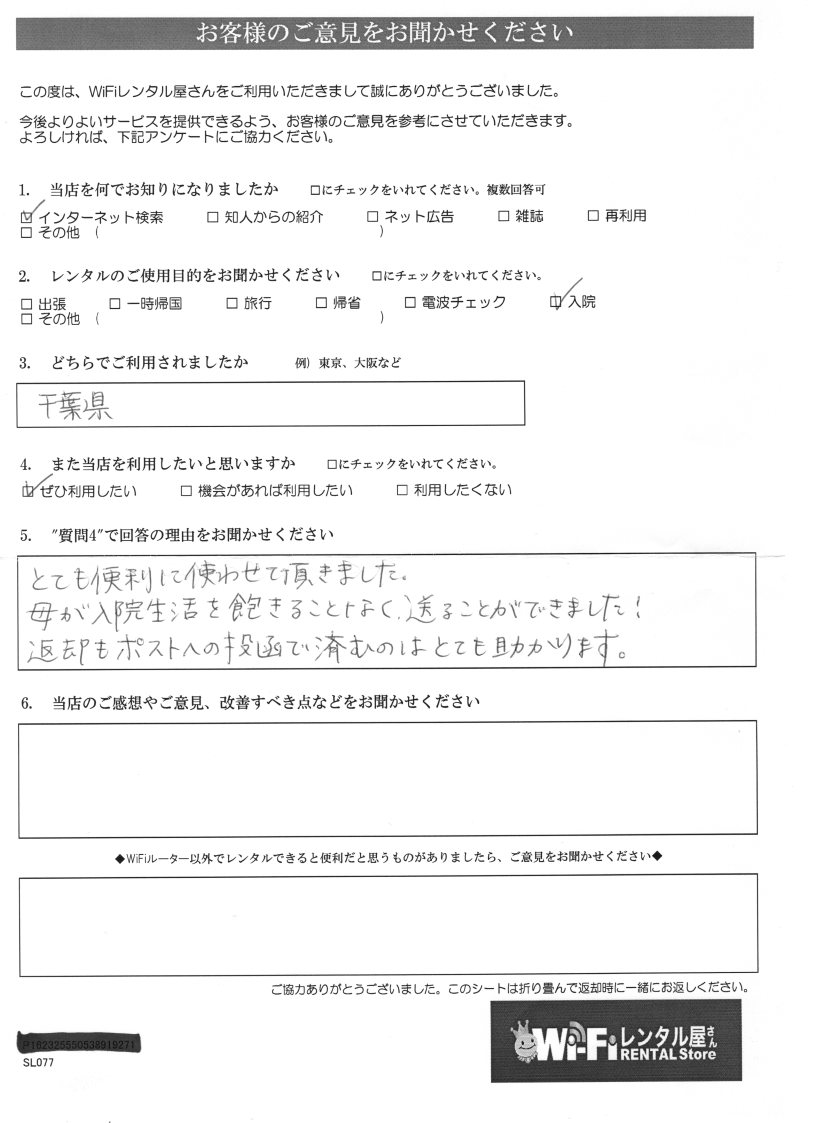 お客様のご意見をお聞かせください
この度は、WiFiレンタル屋さんをご利用いただきまして誠にありがとうございました。
今後よりよいサービスを提供できるよう、お客様のご意見を参考にさせていただきます。
よろしければ、下記アンケートにご協力ください。
1. 当店を何でお知りになりましたか □にチェックをいれてください。複数回答可
☑ インターネット検索 □ 知人からの紹介 □ ネット広告 □ 雑誌 □ 再利用
□ その他 ( )
2. レンタルのご使用目的をお聞かせください □にチェックをいれてください。
□ 出張 □ 一時帰国 □ 旅行 □ 帰省 □ 電波チェック ☑ 入院
□ その他 ( )
3. どちらでご利用されましたか 例）東京、大阪など
千葉県
4. また当店を利用したいと思いますか □にチェックをいれてください。
☑ ぜひ利用したい □ 機会があれば利用したい □ 利用したくない
5. "質問4"で回答の理由をお聞かせください
とても便利に使わせて頂きました。
母が入院生活を飽きることなく、送ることができました！
返却もポストへの投函で済むのはとても助かります。
6. 当店のご感想やご意見、改善すべき点などをお聞かせください
◆WiFiルーター以外でレンタルできると便利だと思うものがありましたら、ご意見をお聞かせください◆
ご協力ありがとうございました。このシートは折り畳んで返却時に一緒にお返しください。
SL077
Wi-Fiレンタル屋さん
RENTAL Store